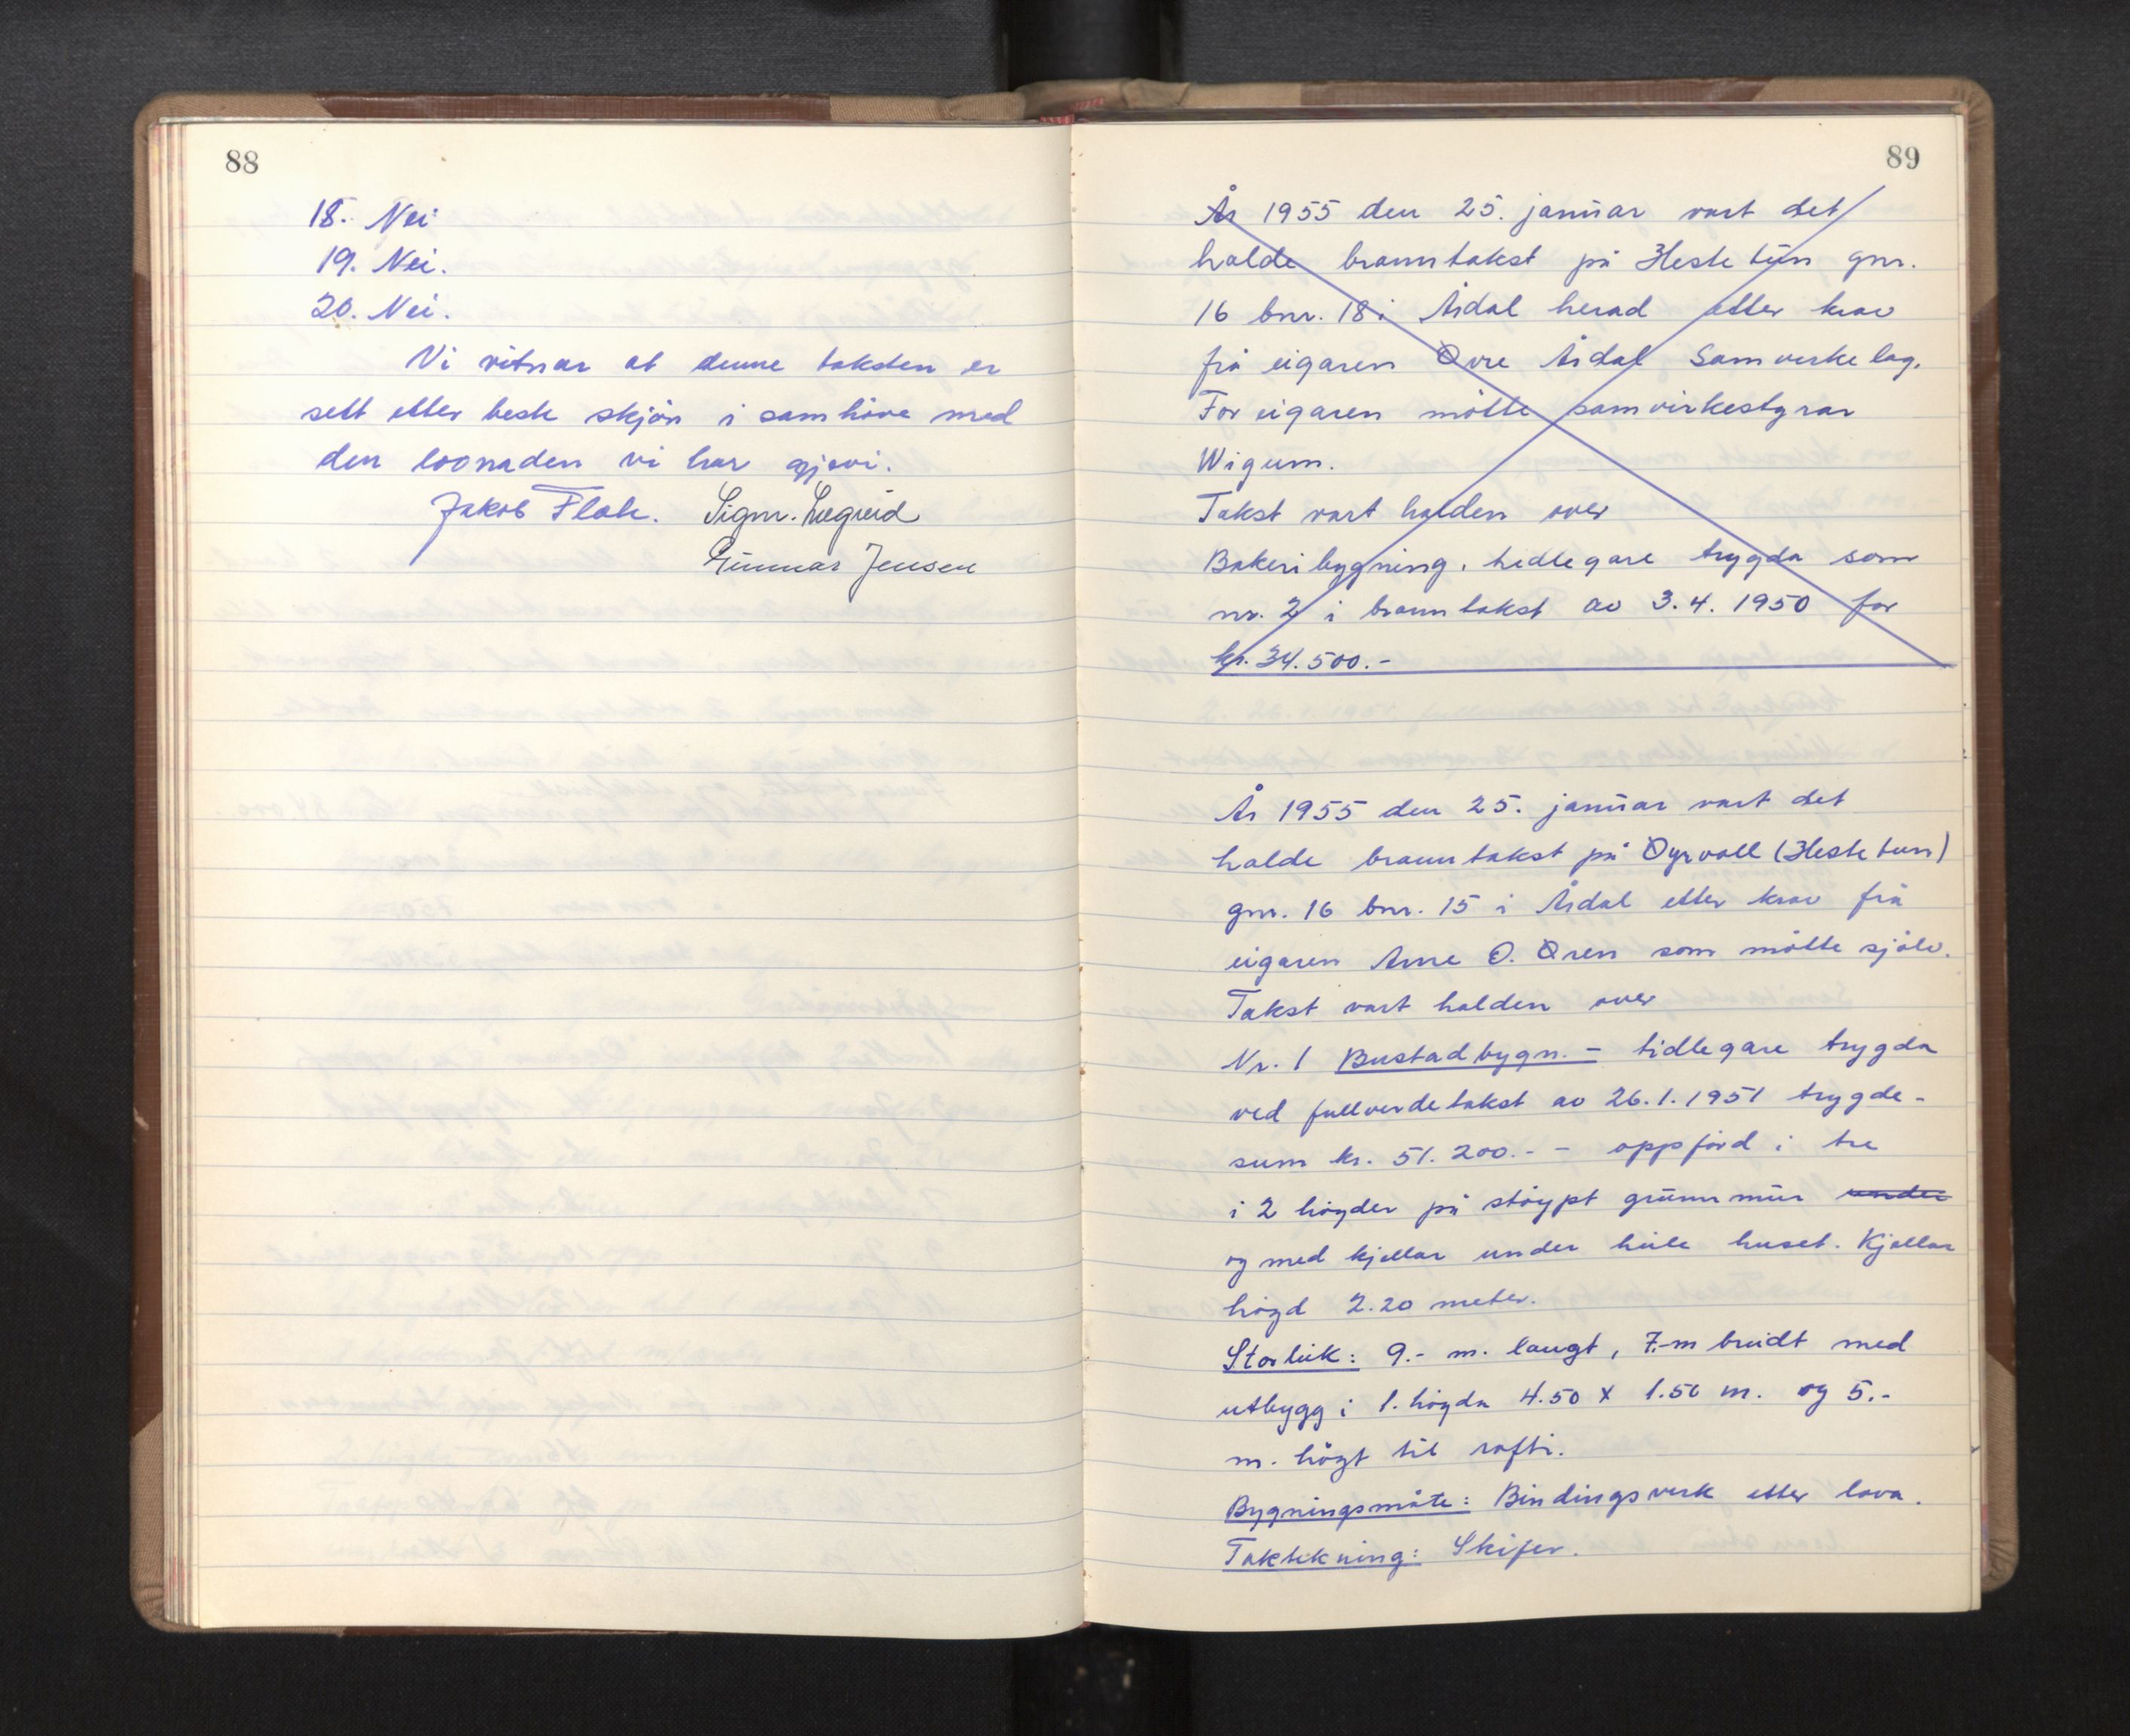 88
18. Nei
19. Nei.
20. Nei.
Vi vitnar at denne taksten er
sett etter beste skjön i samhöve med
den lovnaden vi har gjevi.
Jakob Flak. Sigm. Lægreid
Gunnar Jensen
89
År 1955 den 25. januar vart det
halde branntakst på Hestetun gnr.
16 bnr. 18 i Årdal herad etter krav
frå eigaren Øvre Årdal Samverkelag.
For eigaren møtte samvirkestyrar
Wigum.
Takst vart halden over
Bakeribygning, tidlegare trygda som
nr. 2 i branntakst av 3.4. 1950 for
kr. 34.500.-
År 1955 den 25. januar vart det
halde branntakst på Øyrvoll (Hestetun)
gnr. 16 bnr. 15 i Årdal etter krav frå
eigaren Arne O. Øren som møtte sjølv.
Takst vart halden over
Nr. 1 Bustadbygn. - tidlegare trygda
ved fullverdetakst av 26.1.1951 trygde-
sum kr. 51.200.- - oppförd i tre
i 2 högder på stöypt grunnmur under
og med kjellar under heile huset. Kjellar
högd 2.20 meter.
Storleik: 9.- m. langt, 7.-m breidt med
utbygg i 1. högda 4.50 x 1.50 m. og 5.-
m. högt til rafti.
Bygningsmåte: Bindingsverk etter lova.
Taktekning: Skifer.